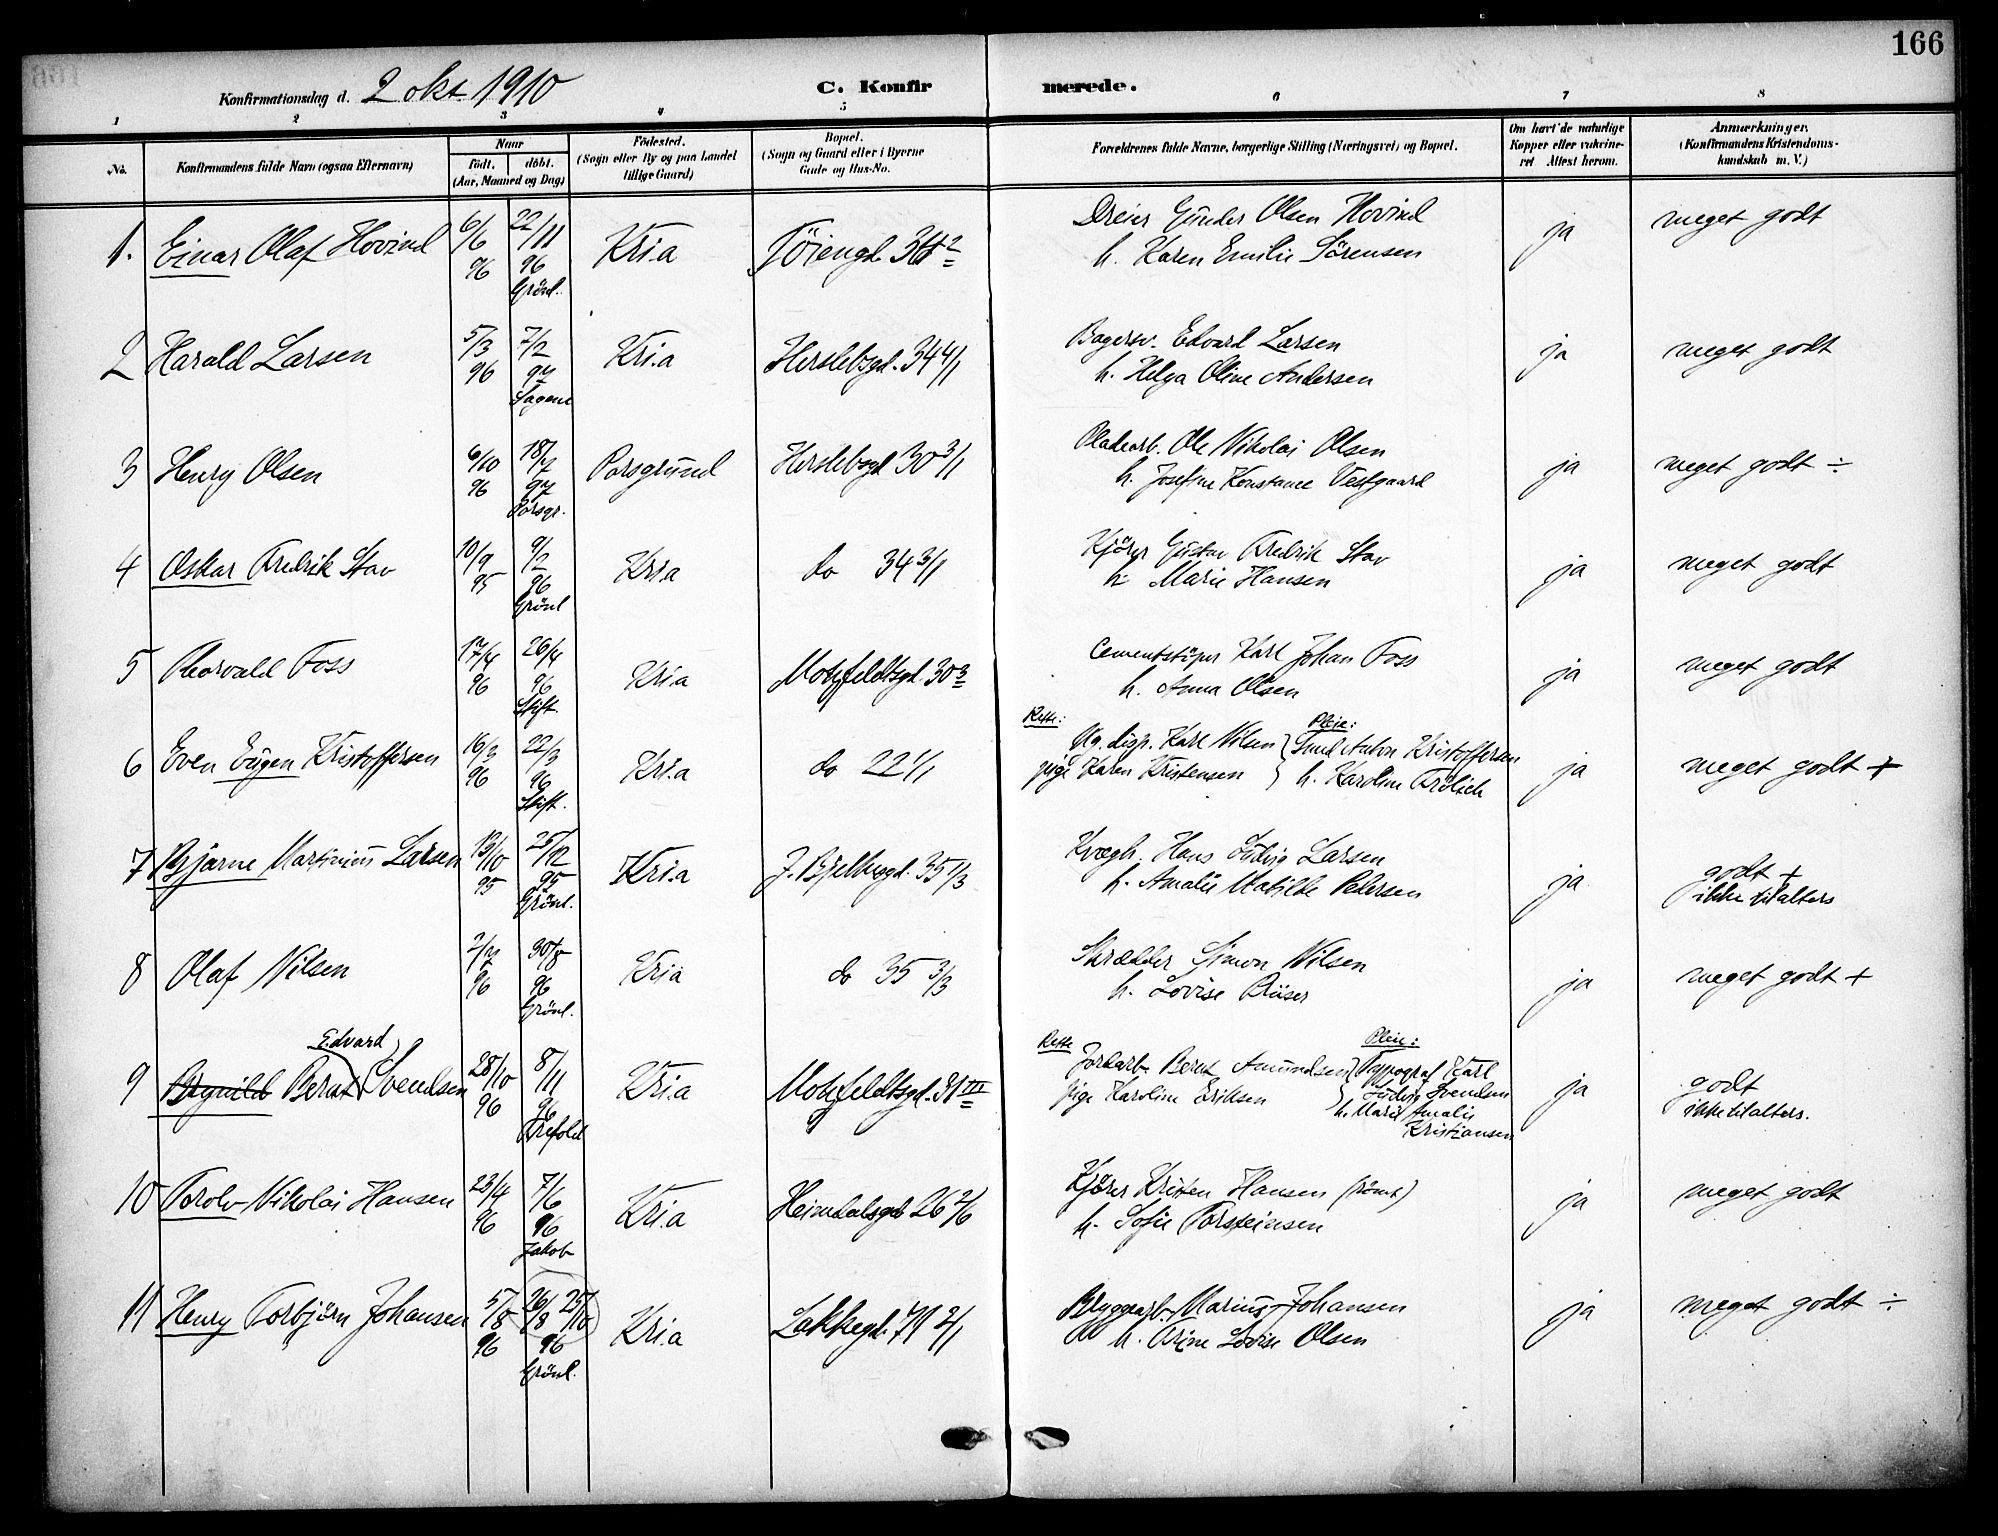 166
Konfirmationsdag d. 2 okt. 1910
C. Konfirmerede.
1 2 3 4 5 6 7 8
No.
Konfirmandens fulde Navn (ogsaa Efternavn)
Naar
födt. döbt.
(Aar, Maaned og Dag)
Födested.
(Sogn eller By og paa Landet
tillige Gaard)
Bopæl.
(Sogn og Gaard eller i Byerne
Gade og Hus-No.
Forældrenes fulde Navne, borgerlige Stilling (Næringsvei) og Bopæl.
Om havt de naturlige
Kopper eller vakcine-
ret Attest herom.
Anmærkninger.
(Konfirmandens Kristendoms-
kundskab m. V.)
1. Einar Olaf Hovind 6/6 96 22/11 96 Grönl. Kri.a Töiengd. Dreier Gunder Olsen Hovind
h. Karen Emilie Sörensen ja meget godt
2 Harald Larsen 5/3 96 7/2 97 Sagene Kri.a Herslebsgd. 34 4/1 Bagersv. Edvard Larsen
h. Helga Oline Andersen ja meget godt
3 Henry Olsen 6/10 96 18/7 97 Porsgr. Porsgrund Herslebsgd 30 3/1 Pladearb. Ole Nikolai Olsen
h. Josefine Konstance Vestgaard ja meget godt ÷
4 Oskar Fredrik Stav 10/9 95 9/2 96 Grönl Kria do 34 3/1 Kjörer Gustav Fredrik Stav
h. Marie Hansen ja meget godt
5 Thorvald Foss 17/4 96 26/4 96 Stift. Kri.a Motzfeldtsgd. 30 3 Cementstöper Karl Johan Foss
h. Anna Olsen ja meget godt
6 Even Eugen Kristoffersen 16/3 96 22/3 96 Stift. Kri.a do 22 1/1 Rette: disp. Karl Nilsen Pleie: Anton Kristoffersen
pige Karen Kristensen h. Karoline Frölich ja meget godt +
7 Bjarne Martinius Larsen 19/10 95 25/12 95 Grönl. Kri.a J. Bjelkesgd. 35 1/3 Kvægh. Hans Ludvig Larsen
h. Amalie Matilde Petersen ja godt +
ikke til alters
8 Olaf Nilsen 2/7 96 30/8 96 Grönl. Kria do 35 3/3 Skrædder Simon Nilsen
h. Lovise Riiser ja meget godt +
Edvard
9 Bernt Svendsen 28/10 96 8/11 96 Trefold. Kri.a Motzfeldtsgd. 31 III Rette Jordarb. Bernt Amundsen Pleie: Typograf Karl
Ludvig Svendsen
pige Karoline Eriksen h. Marie Amalie
Kristiansen ja godt
ikke til alters.
10 Torolv Nikolai Hansen 23/4 96 7/6 96 Jakob Kri.a Heimdalsgd 26 2/6 Kjörer Kristen Hansen (römt)
h. Sofie Torsteinsen ja meget godt
11 Henry Torbjörn Johansen 5/8 96 26/8 25/10 96 Grönl. Kri.a Lakkegd. 71 2/1 Bryggearb. Marius Johansen
h. Trine Lovise Olsen ja meget godt ÷